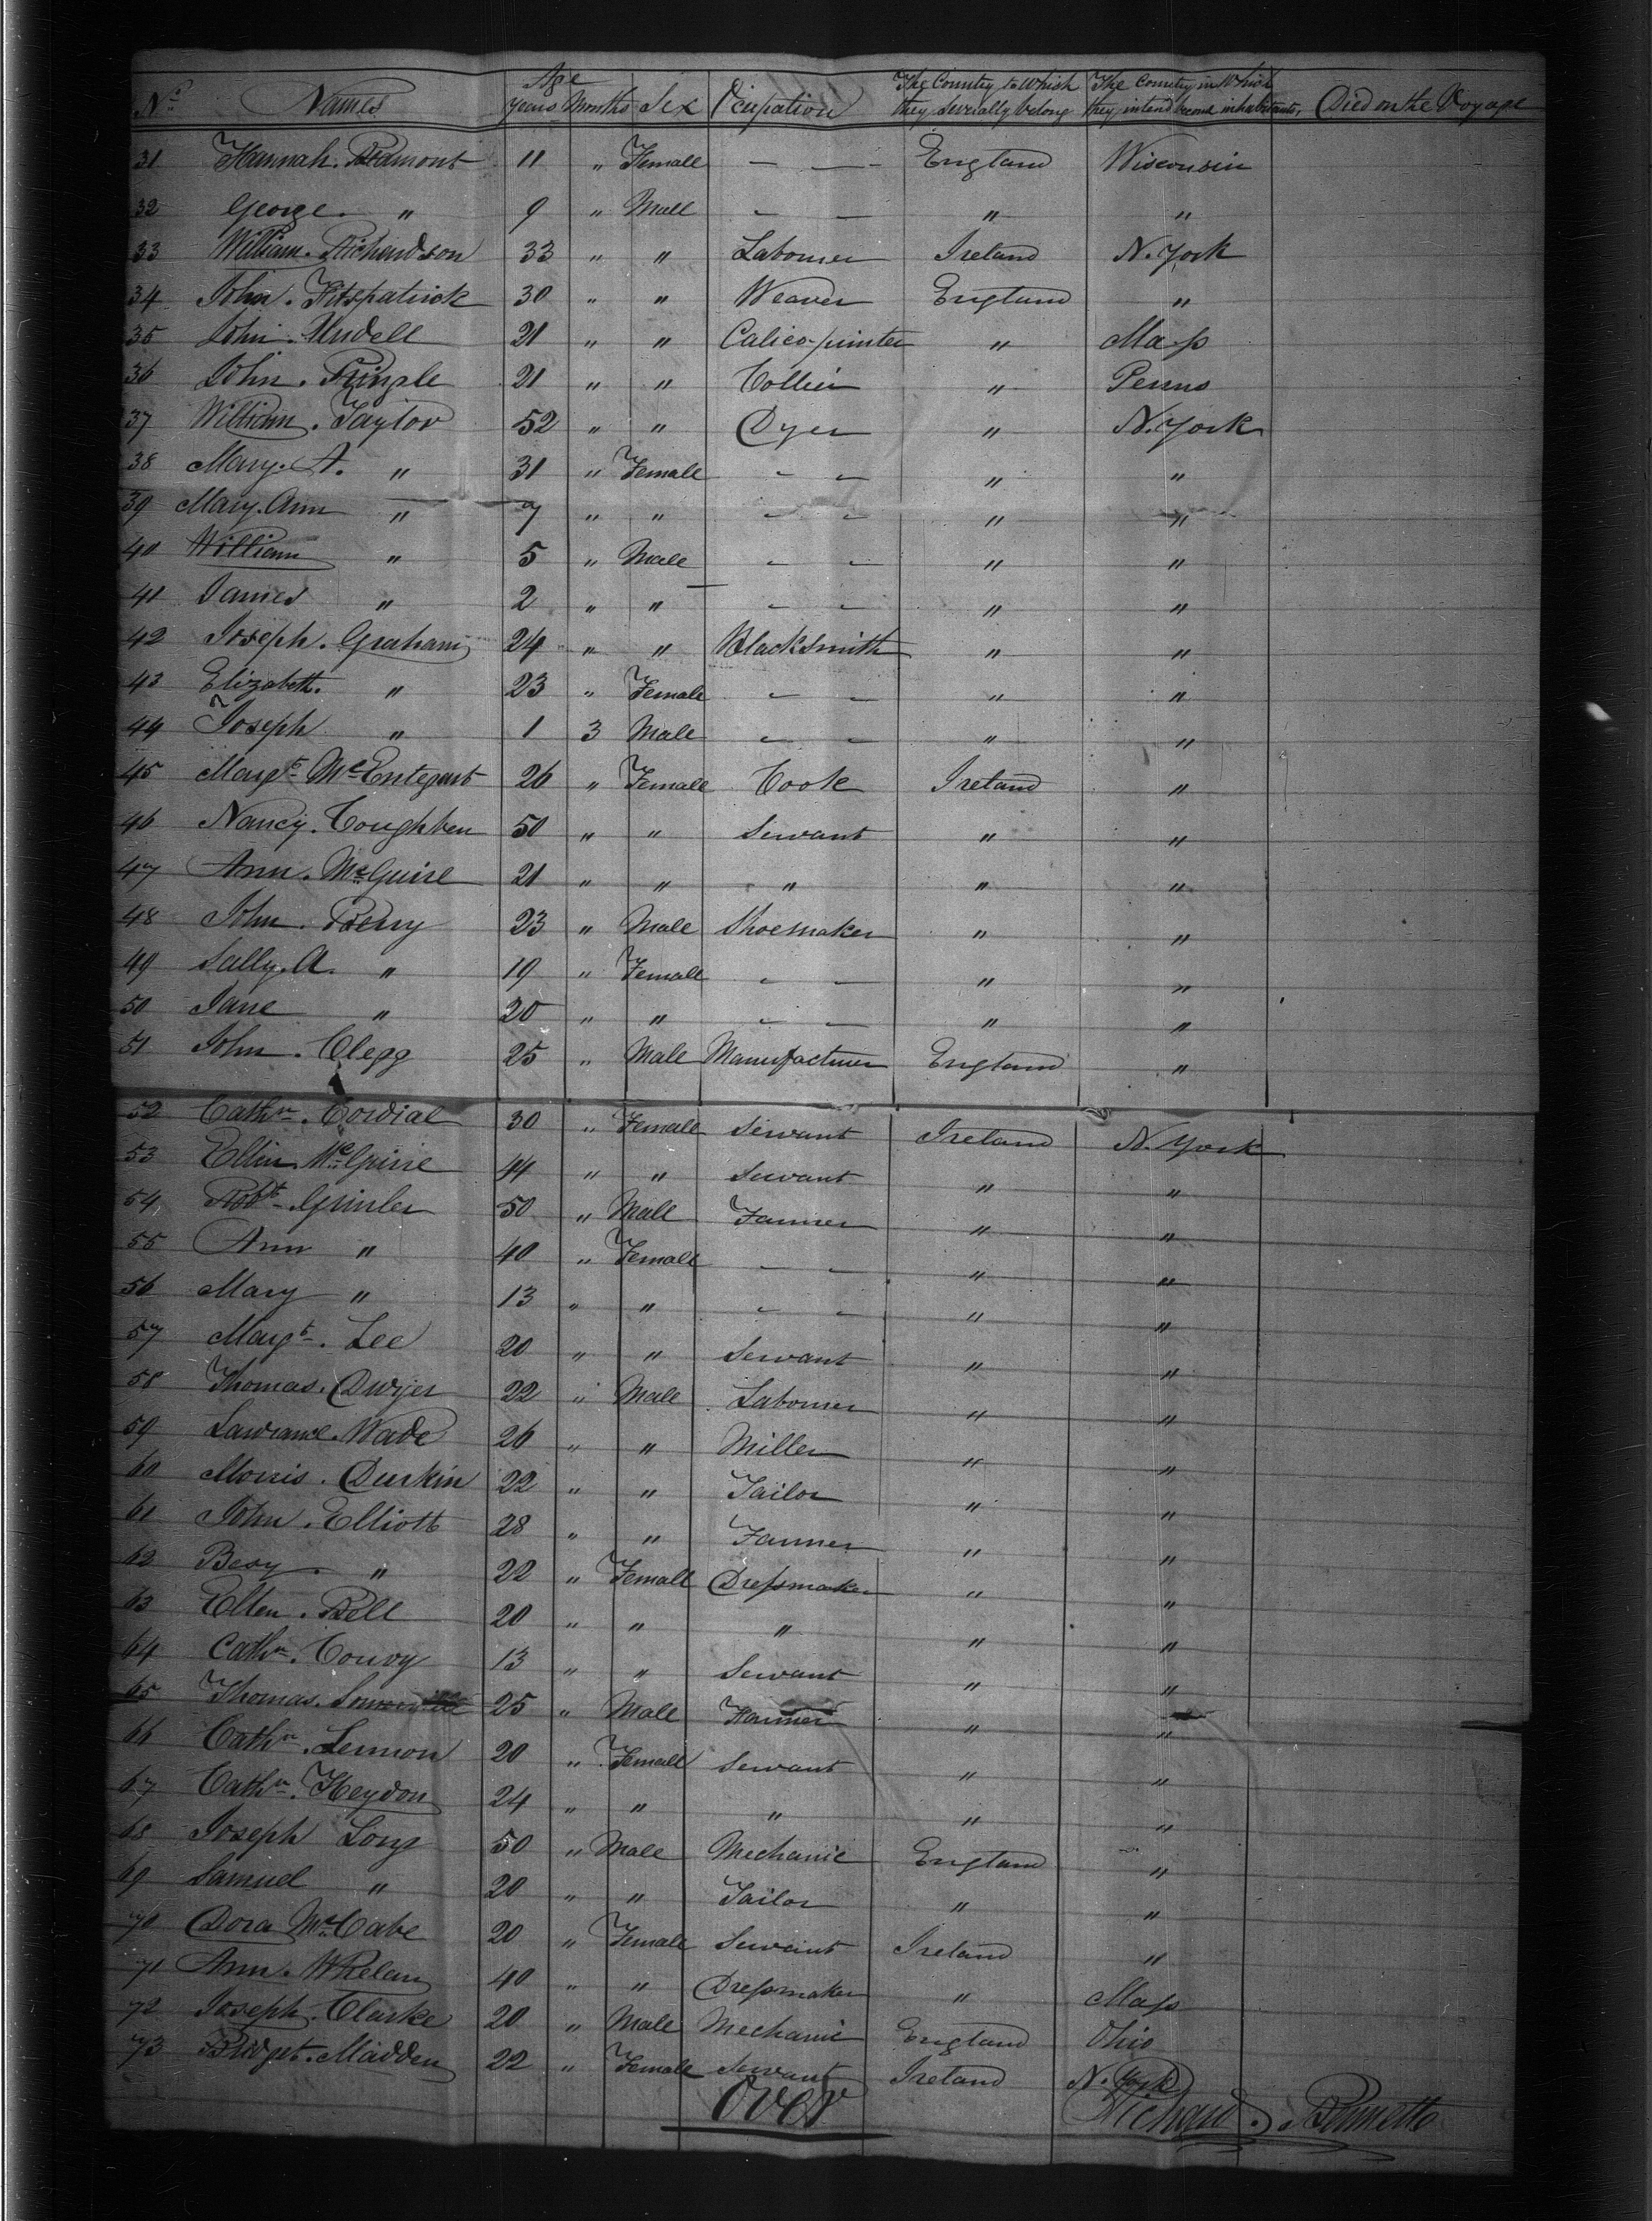 Nº Names Age years Months Sex Ocupation The Country to Which they serially belong The Country in Which they intend becomd inhabitants, Died on the Voyage
31 Hannah. 11 " Female — — England Wisconsin
32 George. " 9 " Male — — " "
33 William. Richardson 33 " " Labourer Ireland N. York
34 John. Fitspatrick 30 " " Weaver England "
35 John. Undell 21 " " Calico-printer " Mass
36 John. Pringle 21 " " Collier " Penns
37 William. Taylor 52 " " Dyer " N. York
38 Mary. A. " 31 " Female - - " "
39 Mary. Ann " 7 " " - - " "
40 William " 5 " Male - - " "
41 James " 2 " " - - " "
42 Joseph. Graham 24 " " Blacksmith " "
43 Elizabeth. " 23 " Female - - " "
44 Joseph " 1 3 Male - - " "
45 Margt. McEntegart 26 " Female Cook Ireland "
46 Nancy. 50 " " Servant " "
47 Ann. McGuire 21 " " " " "
48 John. Berry 23 " Male Shoemaker " "
49 Sally. A. " 19 " Female - - " "
50 Jane " 20 " " - - " "
51 John. Clegg 25 " Male Manufacturer England "
52 Cathn. Cordial 30 " Female Servant Ireland N. York
53 Ellin McGuire 44 " " Servant " "
54 Robt. 50 " Male Farmer " "
55 Ann " 40 " Female - - " "
56 Mary " 13 " " - - " "
57 Margt. Lee 20 " " Servant " "
58 Thomas. Dwyer 22 " Male Labourer " "
59 Lawrance. Wade 26 " " Miller " "
60 Morris. Durkin 22 " " Tailor " "
61 John. Elliott 28 " " Farmer " "
62 Besy. " 22 " Female Dressmaker " "
63 Ellen. Bell 20 " " " " "
64 Cathn. Convy 13 " " Servant " "
65 Thomas. 25 " Male Farmer " "
66 Cathn. Lennon 20 " Female Servant " "
67 Cathn. Heydon 24 " " " " "
68 Joseph Long 50 " Male Mechanic England "
69 Samuel " 20 " " Tailor " "
70 Dora McCabe 20 " Female Servant Ireland "
71 Ann. Whelan 40 " " Dressmaker " Mass
72 Joseph. Clarke 20 " Male Mechanic England Ohio
73 Bridget. Madden 22 " Female Servant Ireland N. York
Over Richard. Bennett